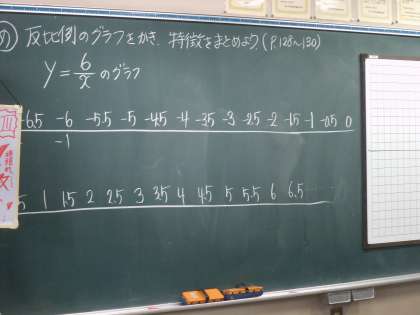 め 反比例のグラフをかき、特徴をまとめよう(P.128〜130)
y = 6/x のグラフ
-6.5 -6 -5.5 -5 -4.5 -4 -3.5 -3 -2.5 -2 -1.5 -1 -0.5 0
-1
5 1 1.5 2 2.5 3 3.5 4 4.5 5 5.5 6 6.5 ……